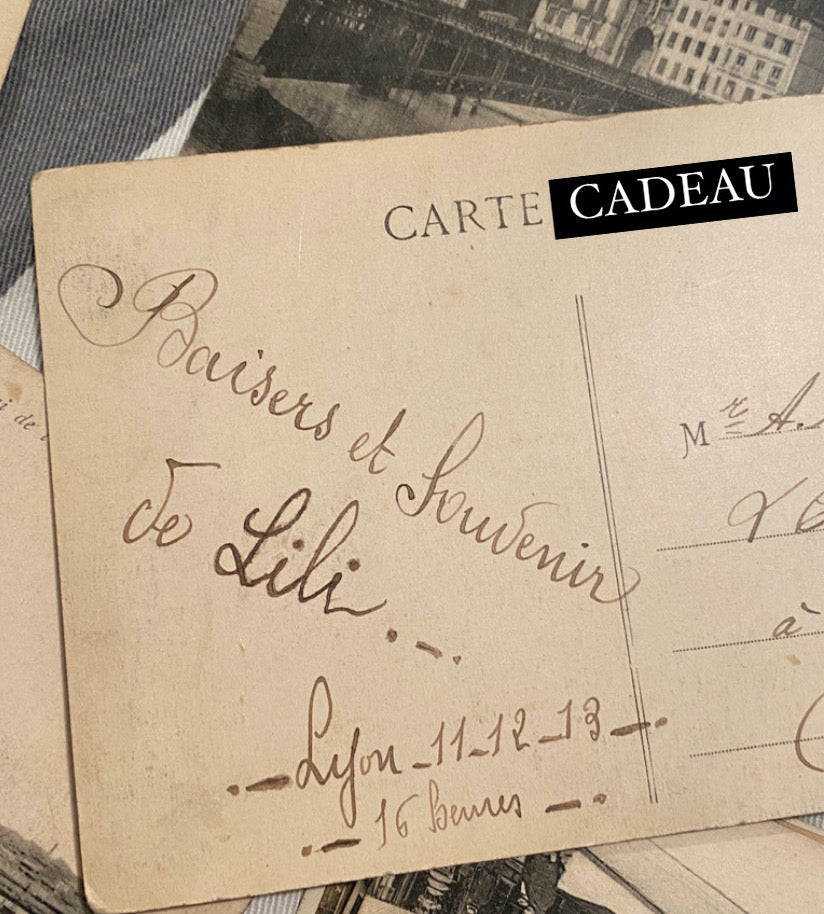 CARTE CADEAU
Baisers et Souvenir
de Lili.
Mr A.
à
Lyon_11_12_13
16 heures